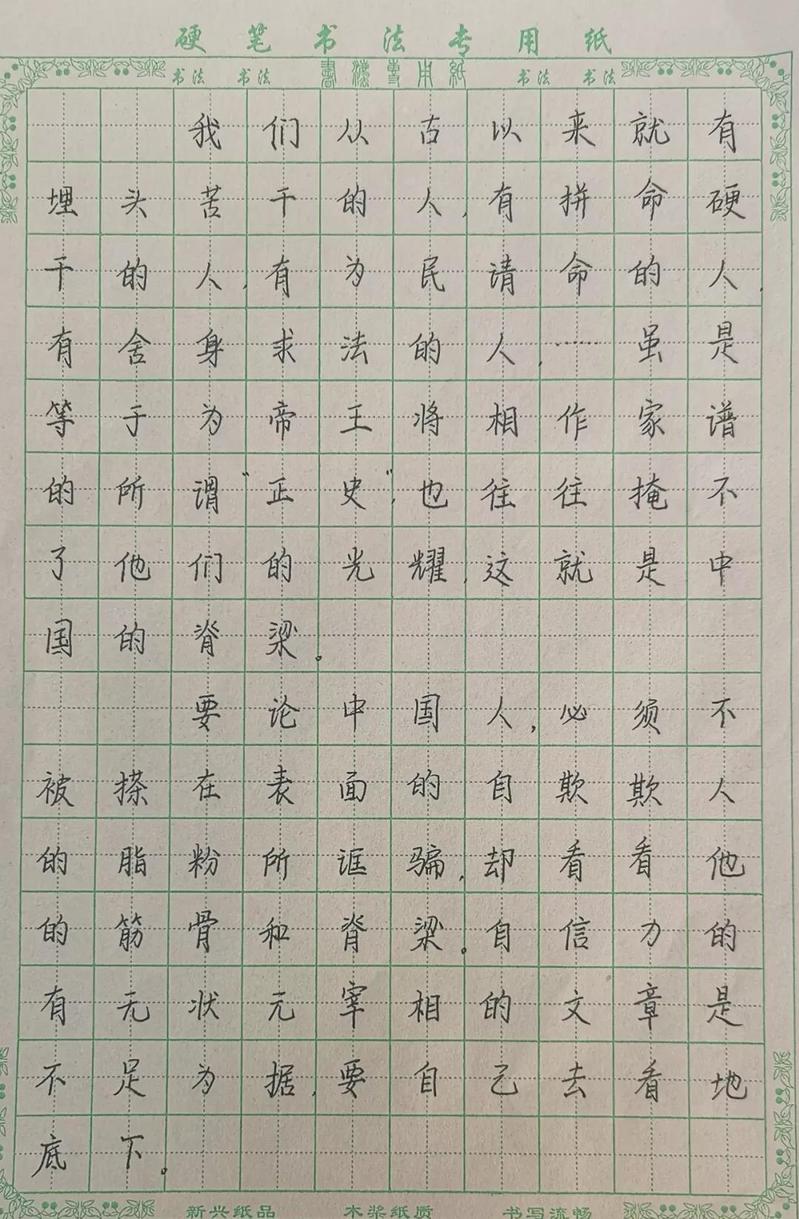 硬笔书法专用纸
书法 书法 書法專用紙 书法 书法
我们从古以来就有
埋头苦干的人,有拼命硬
干的人,有为民请命的人,
有舍身求法的人,……虽是
等于为帝王将相作家谱
的所谓“正史”,也往往掩不
了他们的光耀,这就是中
国的脊梁。
要论中国人,必须不
被搽在表面的自欺欺人
的脂粉所诓骗,却看看他
的筋骨和脊梁。自信力的
有无状元宰相的文章是
不足为据,要自己去看地
底下。
新兴纸品 木浆纸质 书写流畅